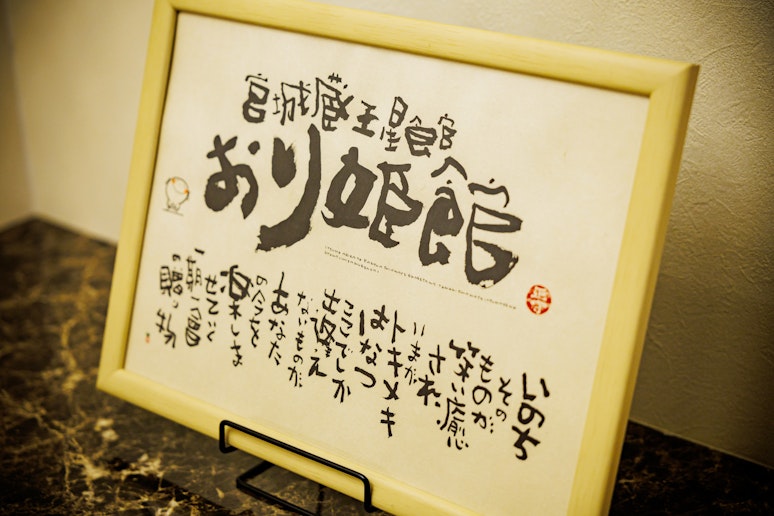 宮城蔵王星館
おり姫館
いのち
その
ものが
笑い癒
され、
いまが
トキメキ
はなつ
ここでしか
出逢え
ないものが、
あなた
の今を
楽しま
せていく
一期一館
の贈り物